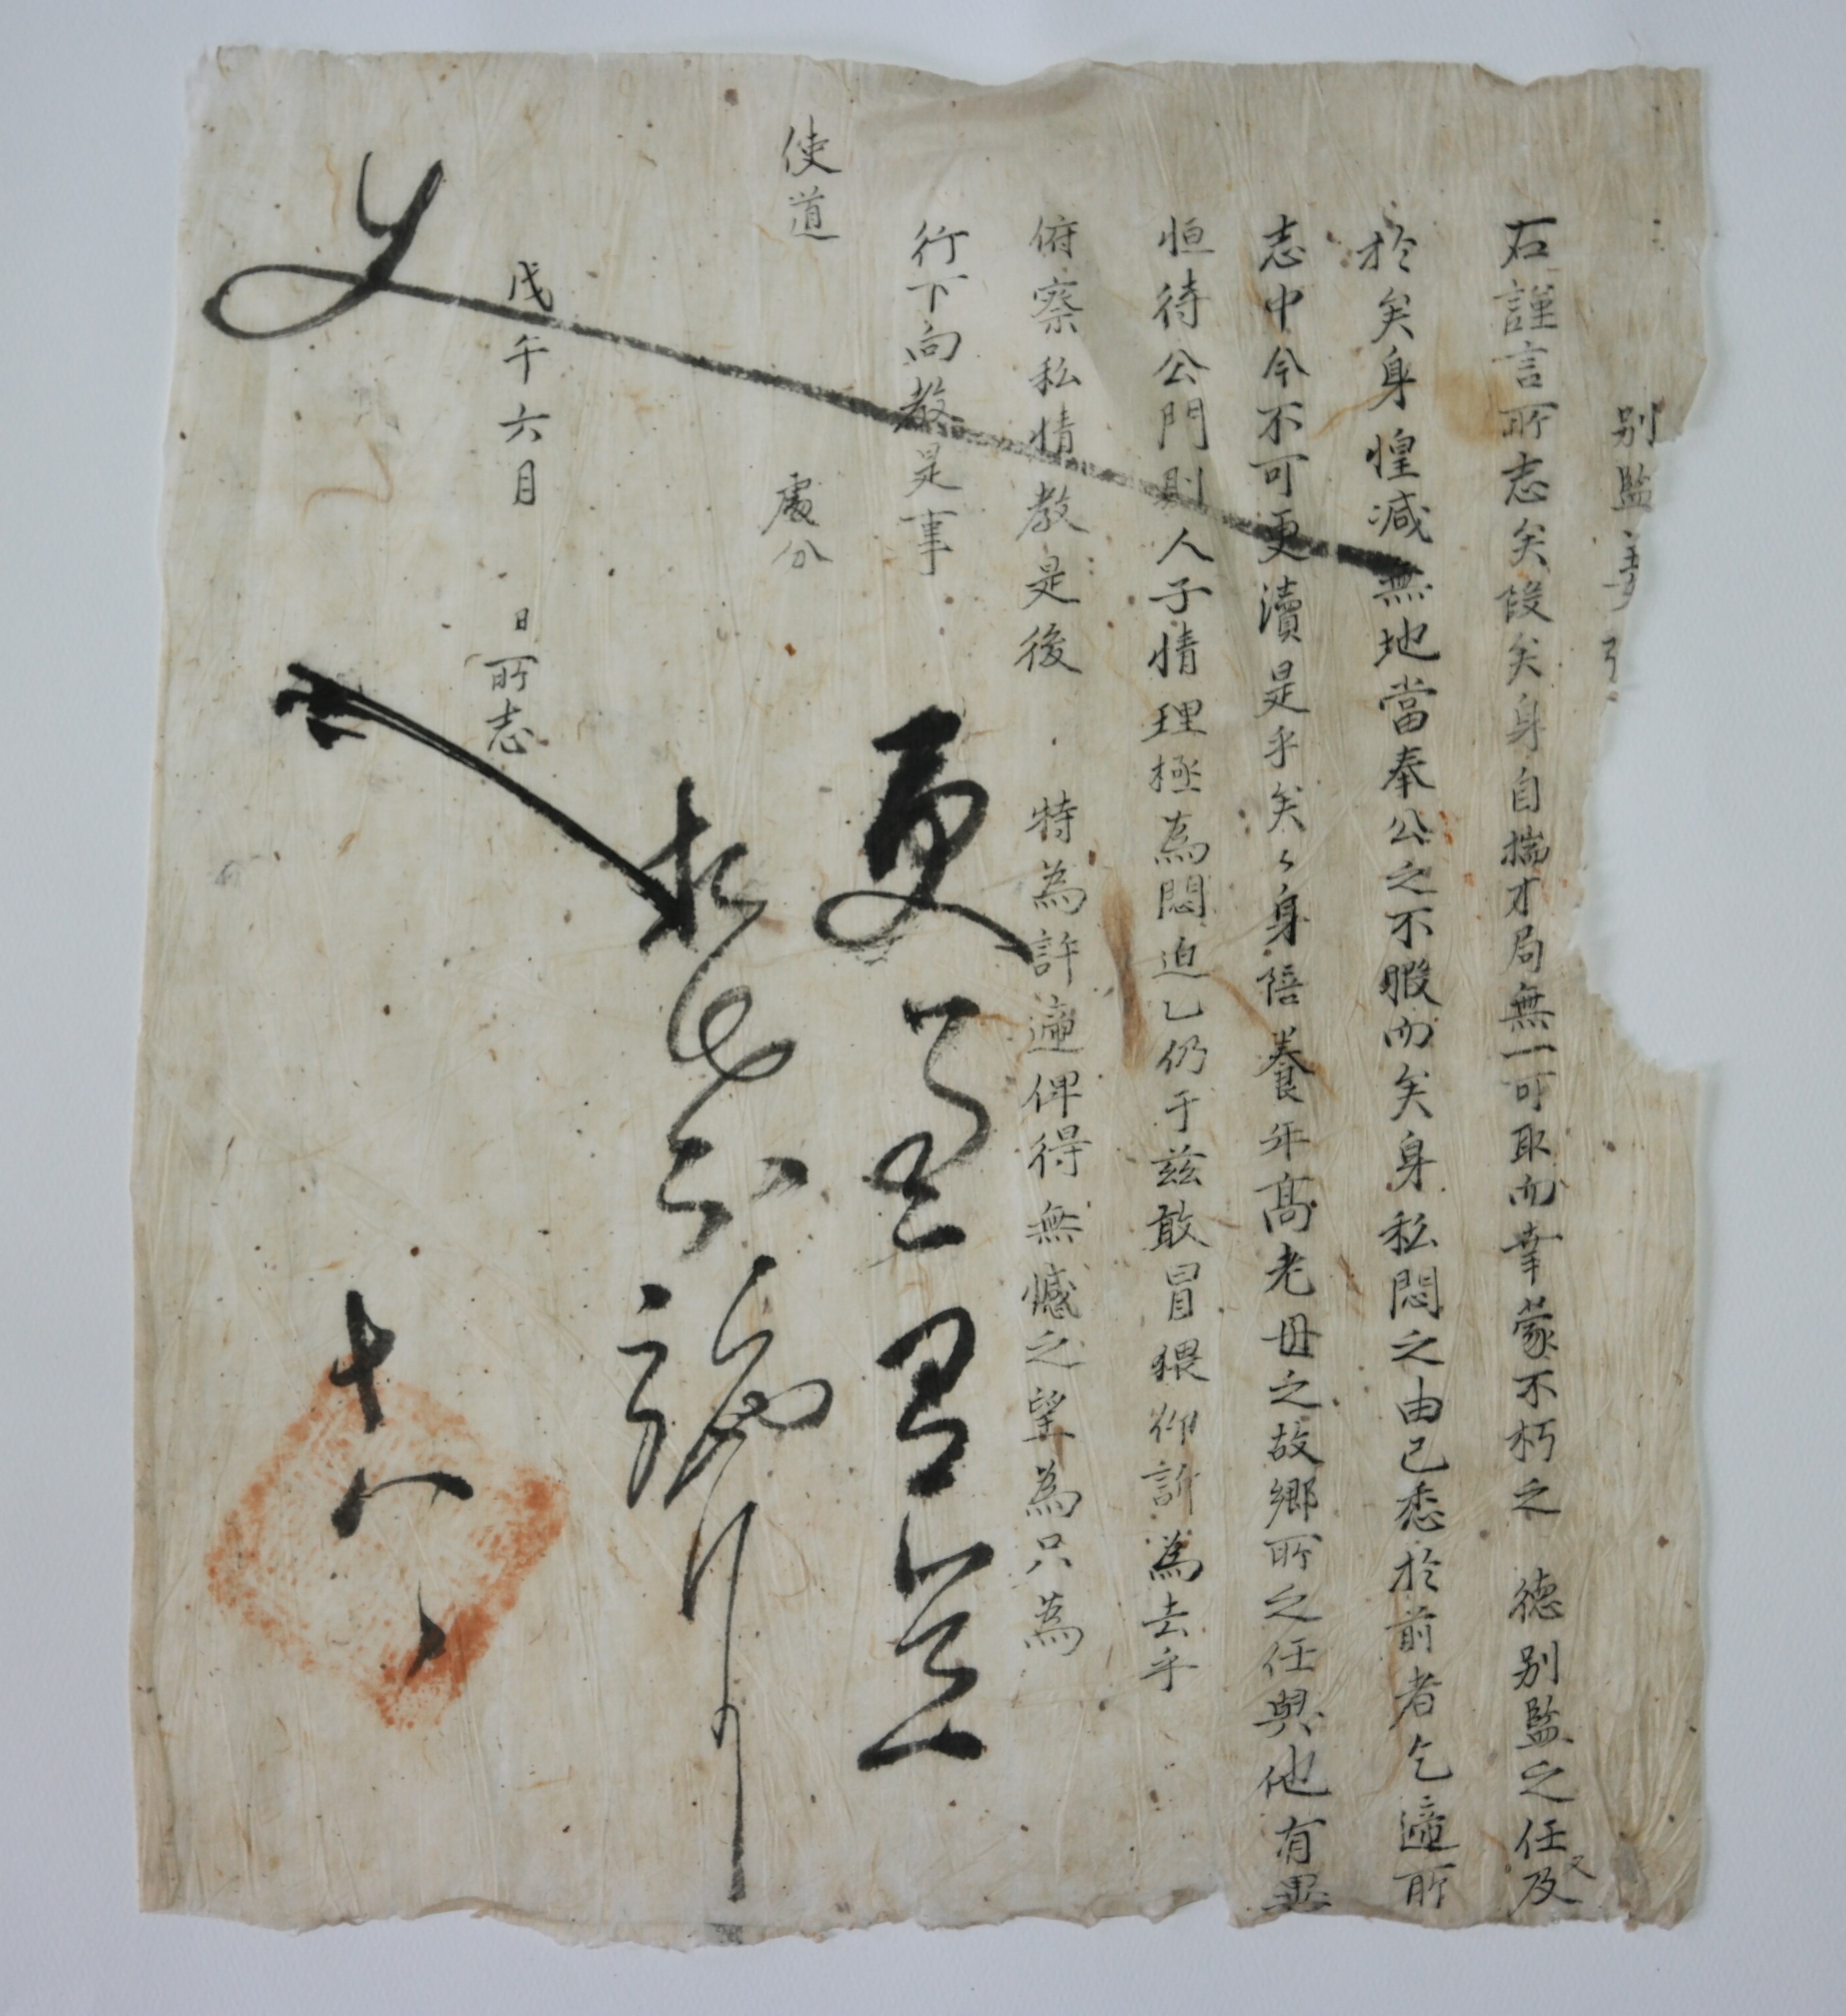 別監
右謹言所志矣段矣身自揣才局無一可取而幸蒙不朽之 德別監之任又及
於矣身惶减無地當奉公之不暇而矣身私悶之由已悉於前者乞遞所
志中今不可更瀆是乎矣矣身陪養年高老母之故鄕所之任與他有異
恒待公門則人子情理極爲悶迫乙仍于玆敢冒猥仰訴爲去乎
俯察私情敎是後 特爲許遞俾得無憾之望爲只爲
行下向敎是事
使道 處分
戊午六月 日所志
更
十八